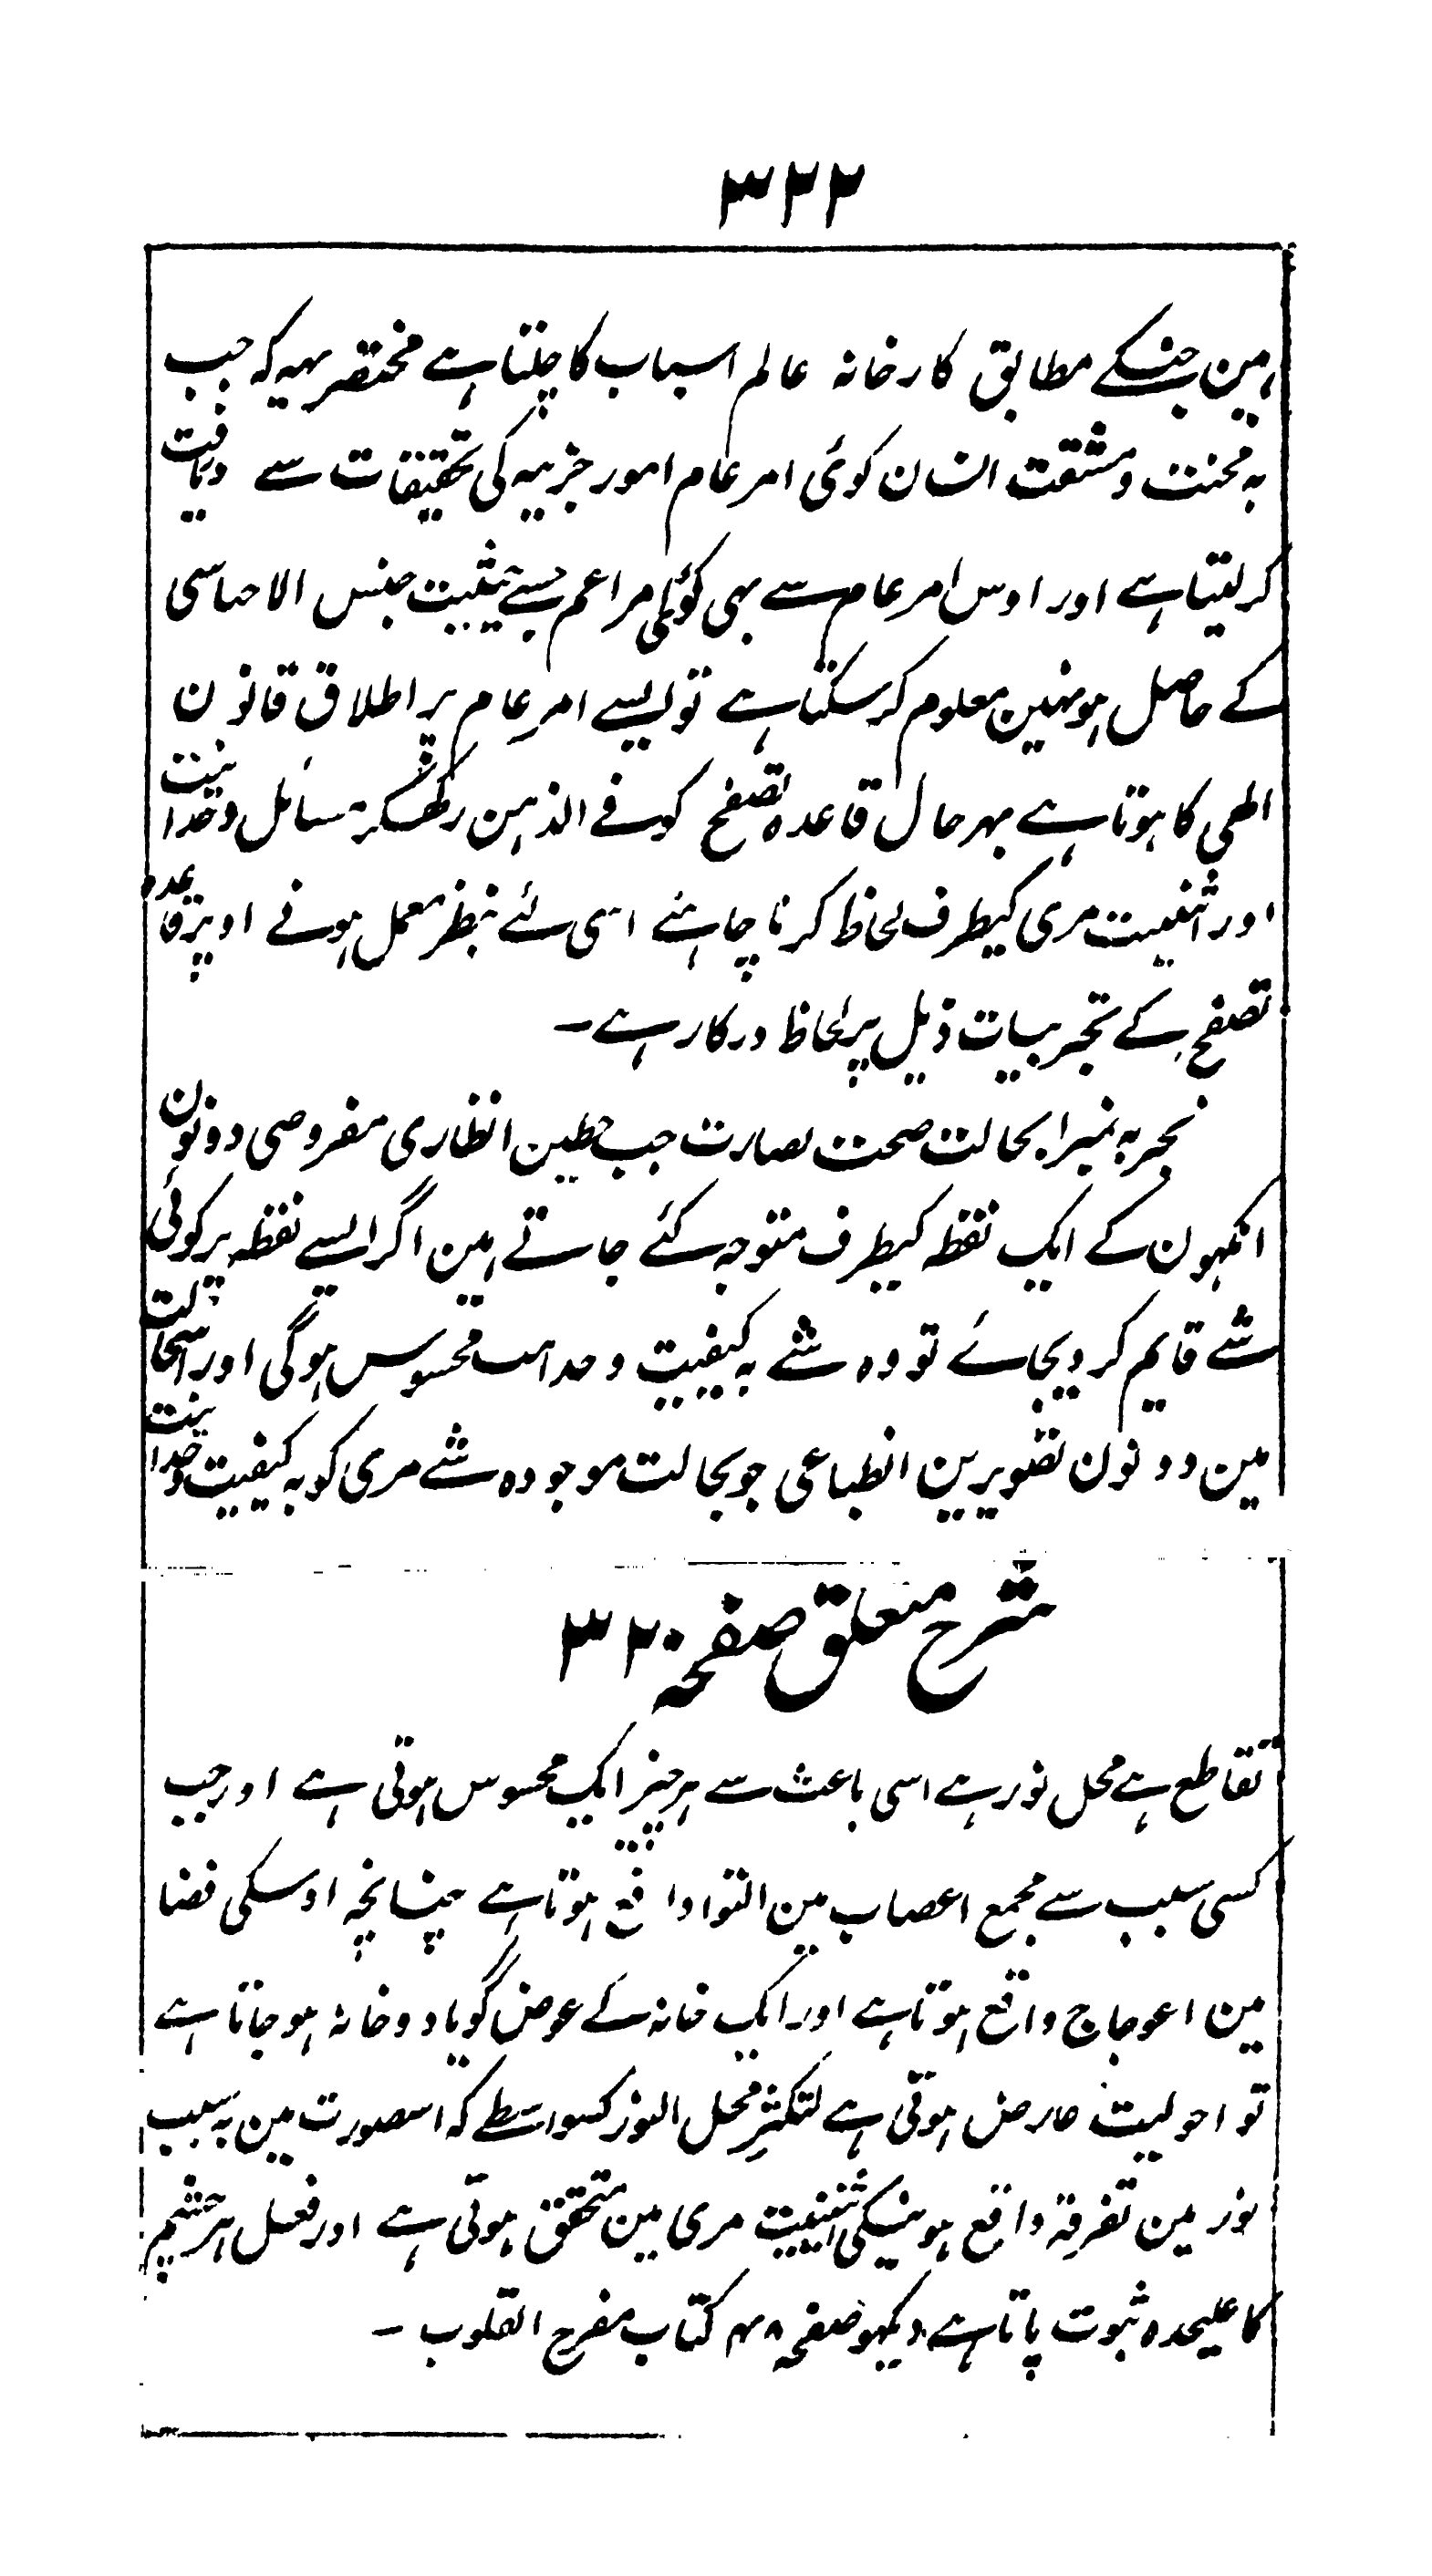 ۳۲۲
ہین جنکے مطابق کارخانہ عالم اسباب کا چلتا ہے مختصر یہہ کہ جب
بہ محنت و مشقت انسان کوئی امر عام امور جزیہ کی تحقیقات سے دریافت
کر لیتا ہے اور اوس امر عام سے بہی کوئی امر اعم جسے حیثیت جنس الاجناسی
کے حاصل ہو نہین معلوم کر سکتا ہے تو ایسے امرِ عام پر اطلاق قانون
الٰہی کا ہوتا ہے بہر حال قاعدہ تصفح کو فے الذہن رکھکر مسائل وحدانیت
اور اثنیت مری کیطرف لحاظ کرنا چاہئے اسی لئے بنظر معمل ہونے اوپر قاعدہ
تصفح کے تجربیات ذیل پر لحاظ درکار ہے ۔
تجربہ نمبر ا بحالت صحت بصارت جب خطین انظاری مفروضی دونون
انکہون کے ایک نقطہ کیطرف متوجہ کئے جاتے ہین اگر ایسے نقطہ پر کوئی
شے قایم کر دیجائے تو وہ شے بہ کیفیت وحدانیت محسوس ہوگی اور اسحالت
مین دونون تصویرین انطباعی جو بحالت موجودہ شے مری کو بہ کیفیت وحدانیت
شرح متعلق صفحہ ۳۲۰
تقاطع ہے محل نور ہے اسی باعث سے ہر چیز ایک محسوس ہوتی ہے اور جب
کسی سبب سے مجمع اعصاب مین التوا واقع ہوتا ہے چنانچہ اوسکی فضا
مین اعوجاج واقع ہوتا ہے اور ایک خانہ کے عوض گویا دو خانہ ہو جاتا ہے
تو احولیت عارض ہوتی ہے لتکثرِ محل النور کسواسطے کہ اسصورت مین بہ سبب
نور مین تفرقہ واقع ہونیکی اثنیت مری مین متحقق ہوتی ہے اور فعل ہر چشم
کا علیحدہ ثبوت پاتا ہے دیکہو صفحہ ۴۸ کتاب مفرح القلوب ۔